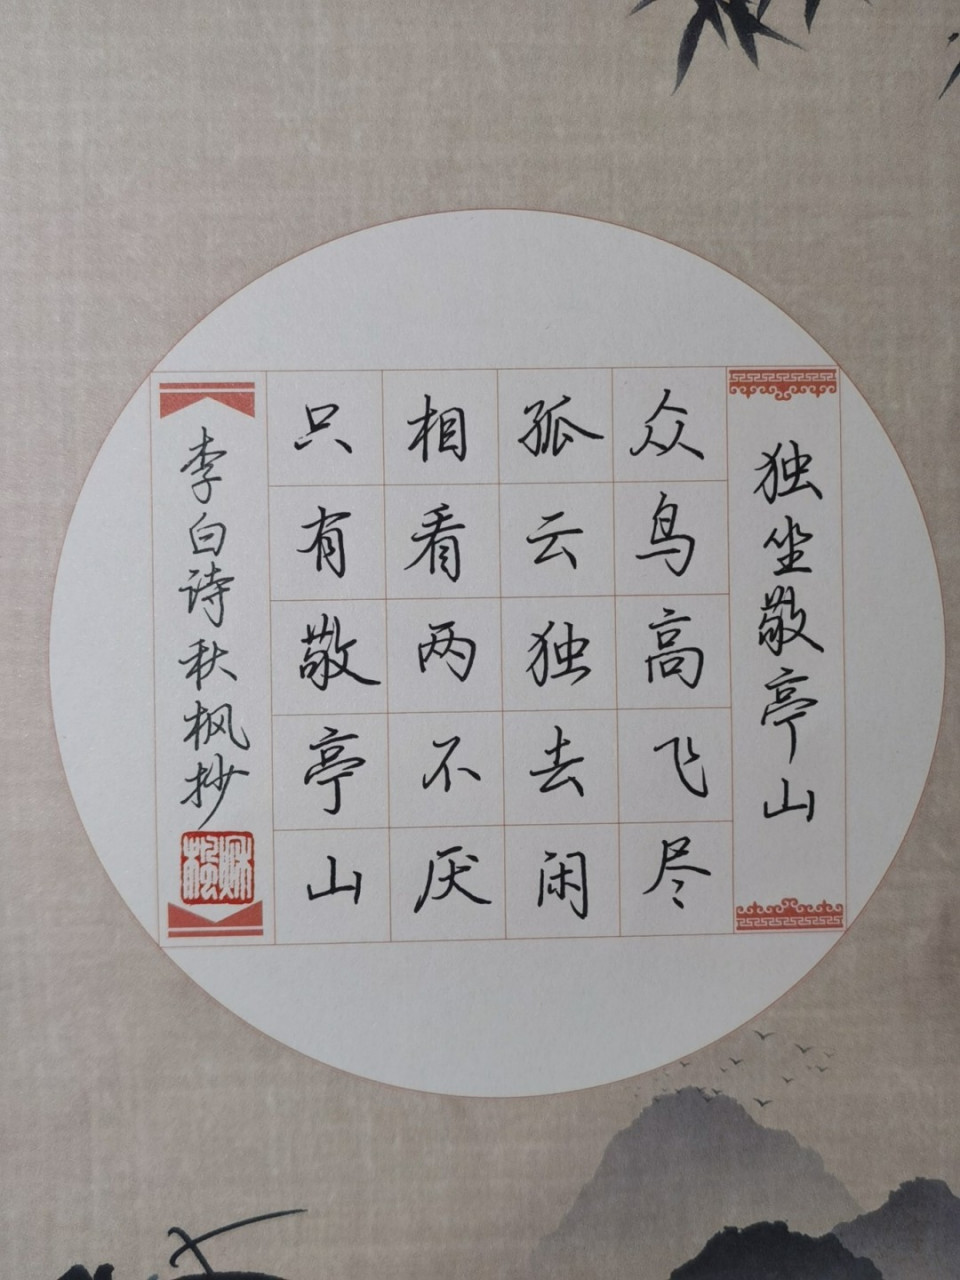 独坐敬亭山
众鸟高飞尽
孤云独去闲
相看两不厌
只有敬亭山
李白诗秋枫抄